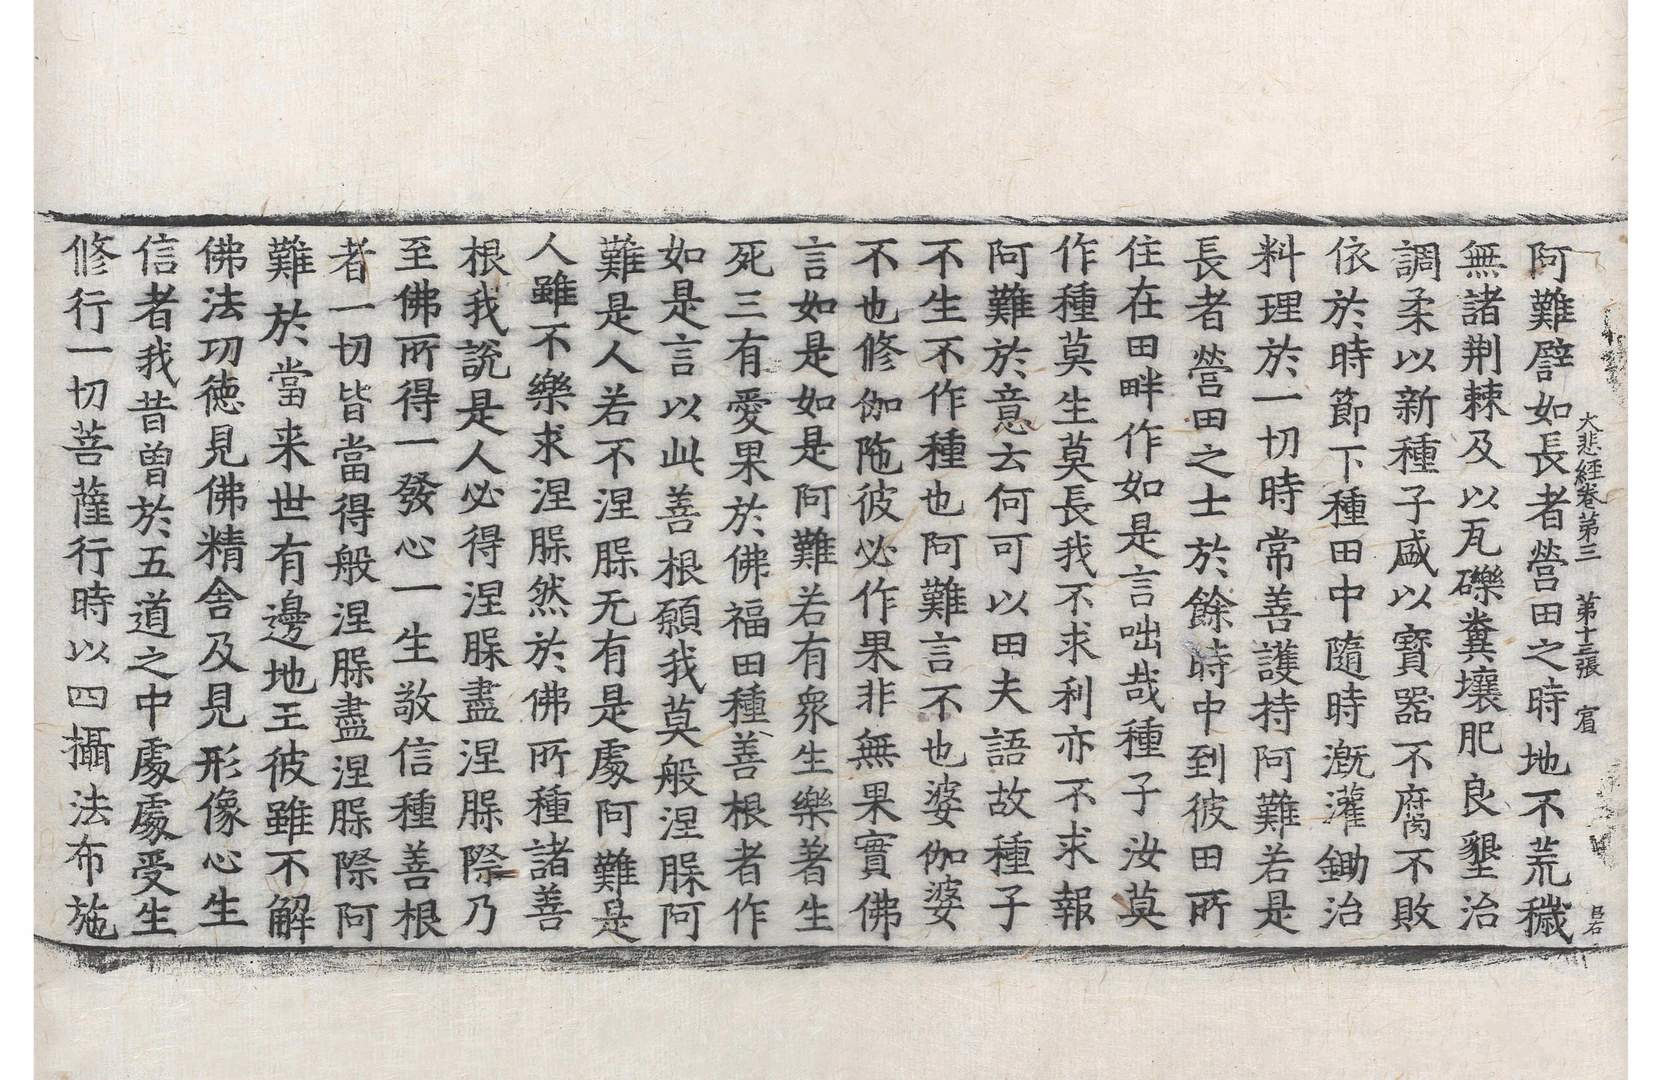 大悲經卷第三 第十三張 賓
阿難譬如長者營田之時地不荒穢
無諸荆棘及以瓦礫糞壤肥良墾治
調柔以新種子盛以寶器不腐不敗
依於時節下種田中隨時溉灌鋤治
料理於一切時常善護持阿難若是
長者營田之士於餘時中到彼田所
住在田畔作如是言咄哉種子汝莫
作種莫生莫長我不求利亦不求報
阿難於意云何可以田夫語故種子
不生不作種也阿難言不也婆伽婆
不也修伽陁彼必作果非無果實佛
言如是如是阿難若有衆生樂著生
死三有愛果於佛福田種善根者作
如是言以此善根願我莫般涅脲阿
難是人若不涅脲无有是處阿難是
人雖不樂求涅脲然於佛所種諸善
根我說是人必得涅脲盡涅脲際乃
至佛所得一發心一生敬信種善根
者一切皆當得般涅脲盡涅脲際阿
難於當来世有邊地王彼雖不解
佛法功徳見佛精舍及見形像心生
信者我昔曽於五道之中處處受生
修行一切菩薩行時以四攝法布施